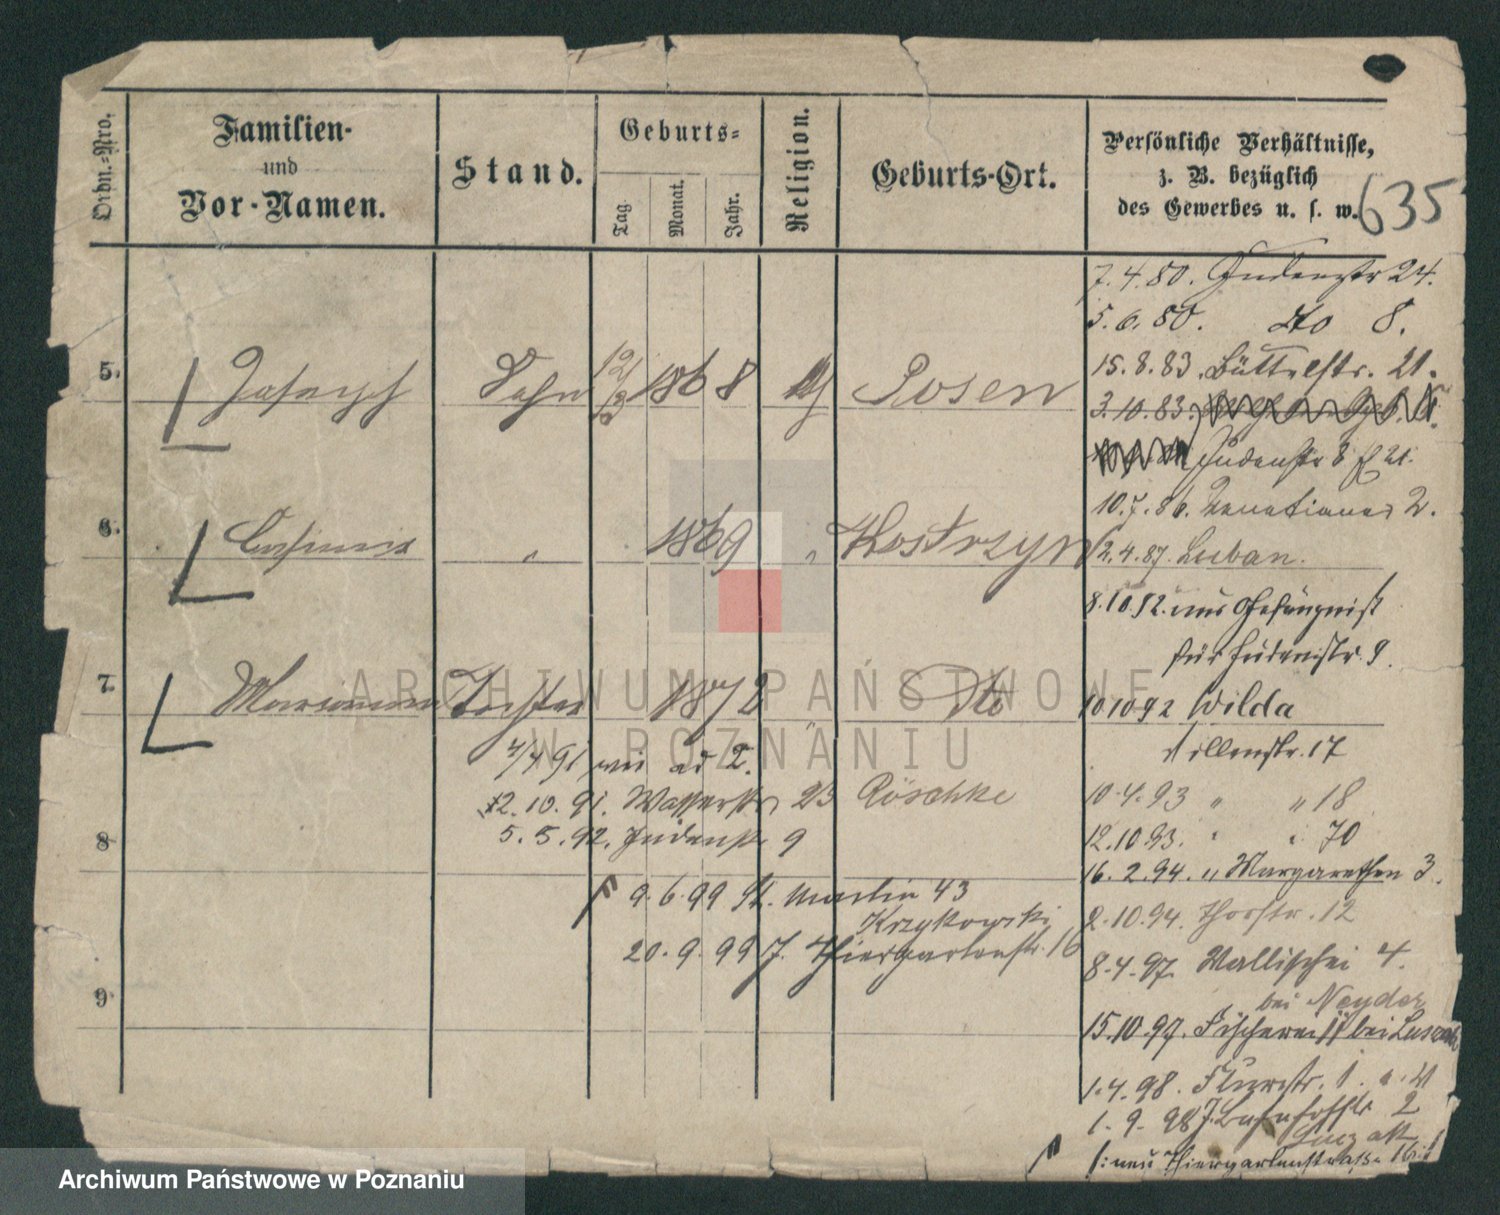 Ordn.-Nro.
Familien-
und
Vor-Namen.
Stand.
Geburts-
Tag.
Monat.
Jahr.
Religion.
Geburts-Ort.
Persönliche Verhältnisse,
z. B. bezüglich
des Gewerbes u. s. w.
635
7.4.80. Judenstr 24.
5.6.80. dto 8.
15.8.83. Büttelstr. 21.
5. Joseph Sohn 12/3 1868 Posen
3.10.83.
Judenstr 8
10.7.86. Venetianer 2.
6. Casimir " 1869 " Kostrzyn
2.4.87. Luban.
8.10.92. aus Gefängniß
für Judenstr. 9.
7. Marianna Tochter 1872 Dto
10 10 92 Wilda
4/4 91 wie ad 2.
17
12.10.91. Wasserstr 23 Röschke
10.4.93 " " 18
5.5.92. Judenstr 9
8
12.10.93. " " 70
16.2.94. " Margarethen 3.
9.6.99 St. Martin 43
Krzykowski
2.10.94. Thorstr. 12
20.9.99 J. Thiergartenstr. 16
8.4.97. Wallischei 4.
bei Neyder
9
15.10.97. Fischerei 11 bei
1.4.98.
1.9.98 J. Bahnhofstr 2
neu Thiergartenstraße 16
ARCHIWUM PAŃSTWOWE
W POZNANIU
Archiwum Państwowe w Poznaniu